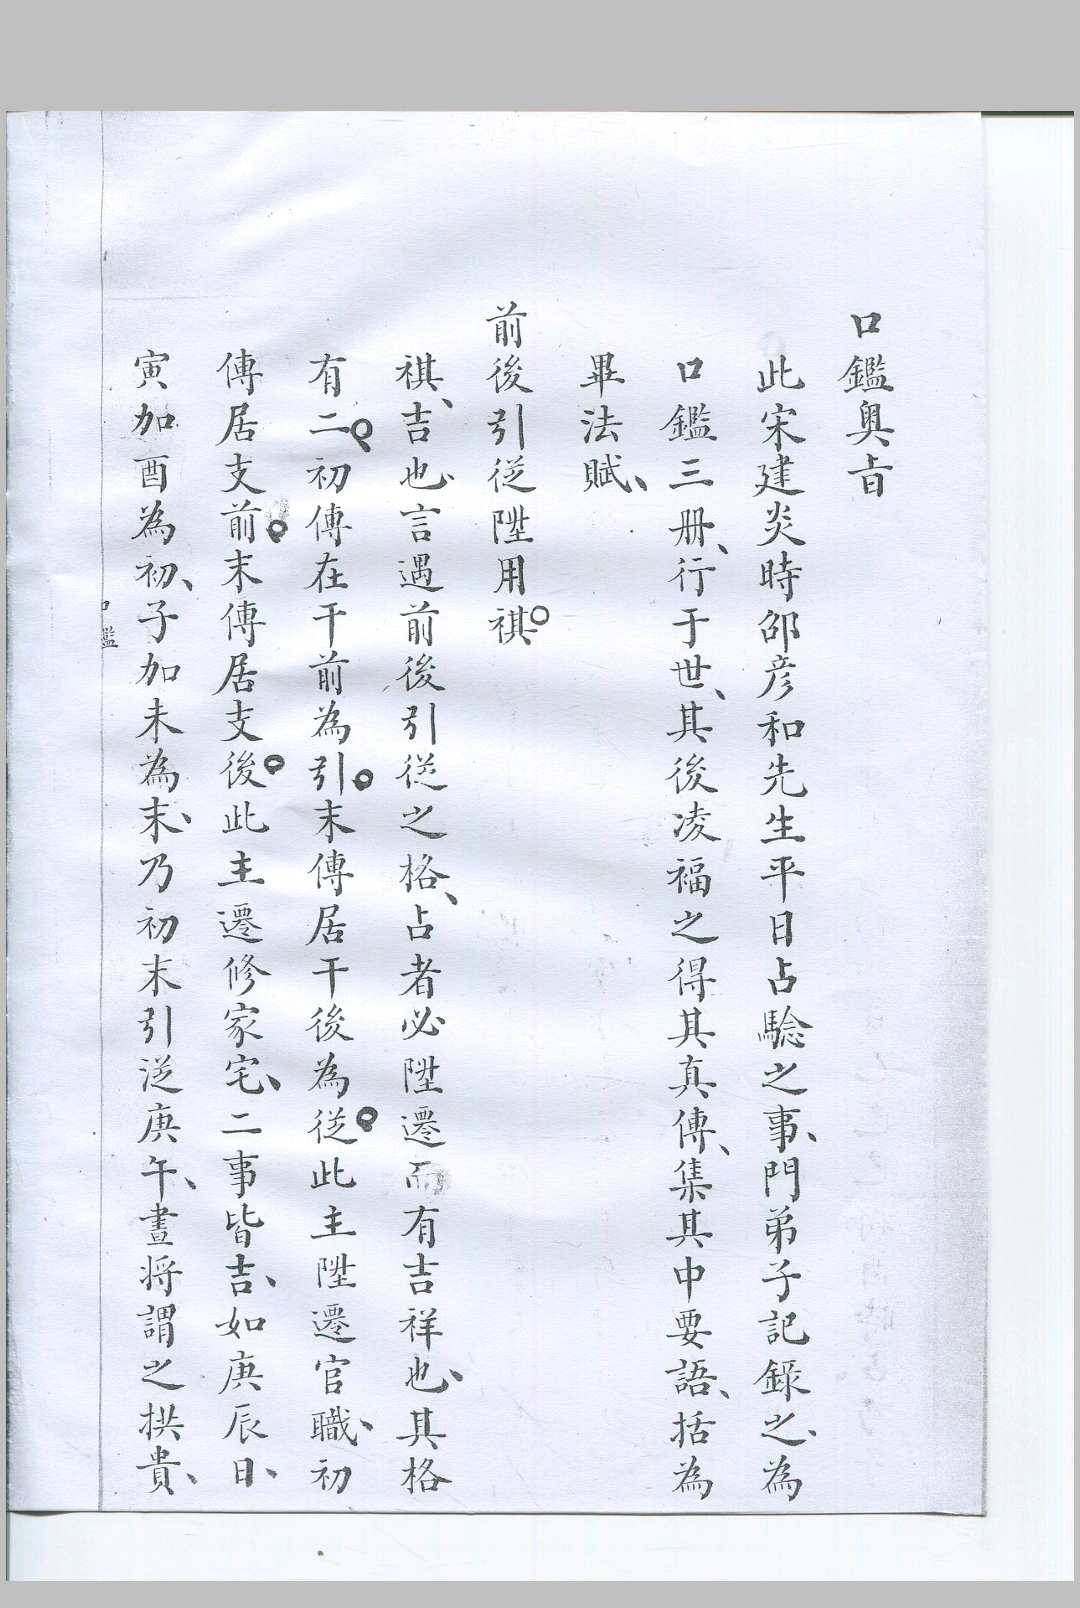 口鑑奥旨
此宋建炎時邵彦和先生平日占騐之事、門弟子記錄之、為
口鑑三册、行于世、其後凌福之得其真傳、集其中要語、括為
畢法賦、
前後引從陞用祺。
祺、吉也、言遇前後引從之格、占者必陞遷而有吉祥也、其格
有二。初傳在干前為引。末傳居干後為從。此主陞遷官職、初
傳居支前。末傳居支後。此主遷修家宅、二事皆吉、如庚辰日、
寅加酉為初、子加未為末、乃初末引從庚午、晝將謂之拱貴、
口鑑